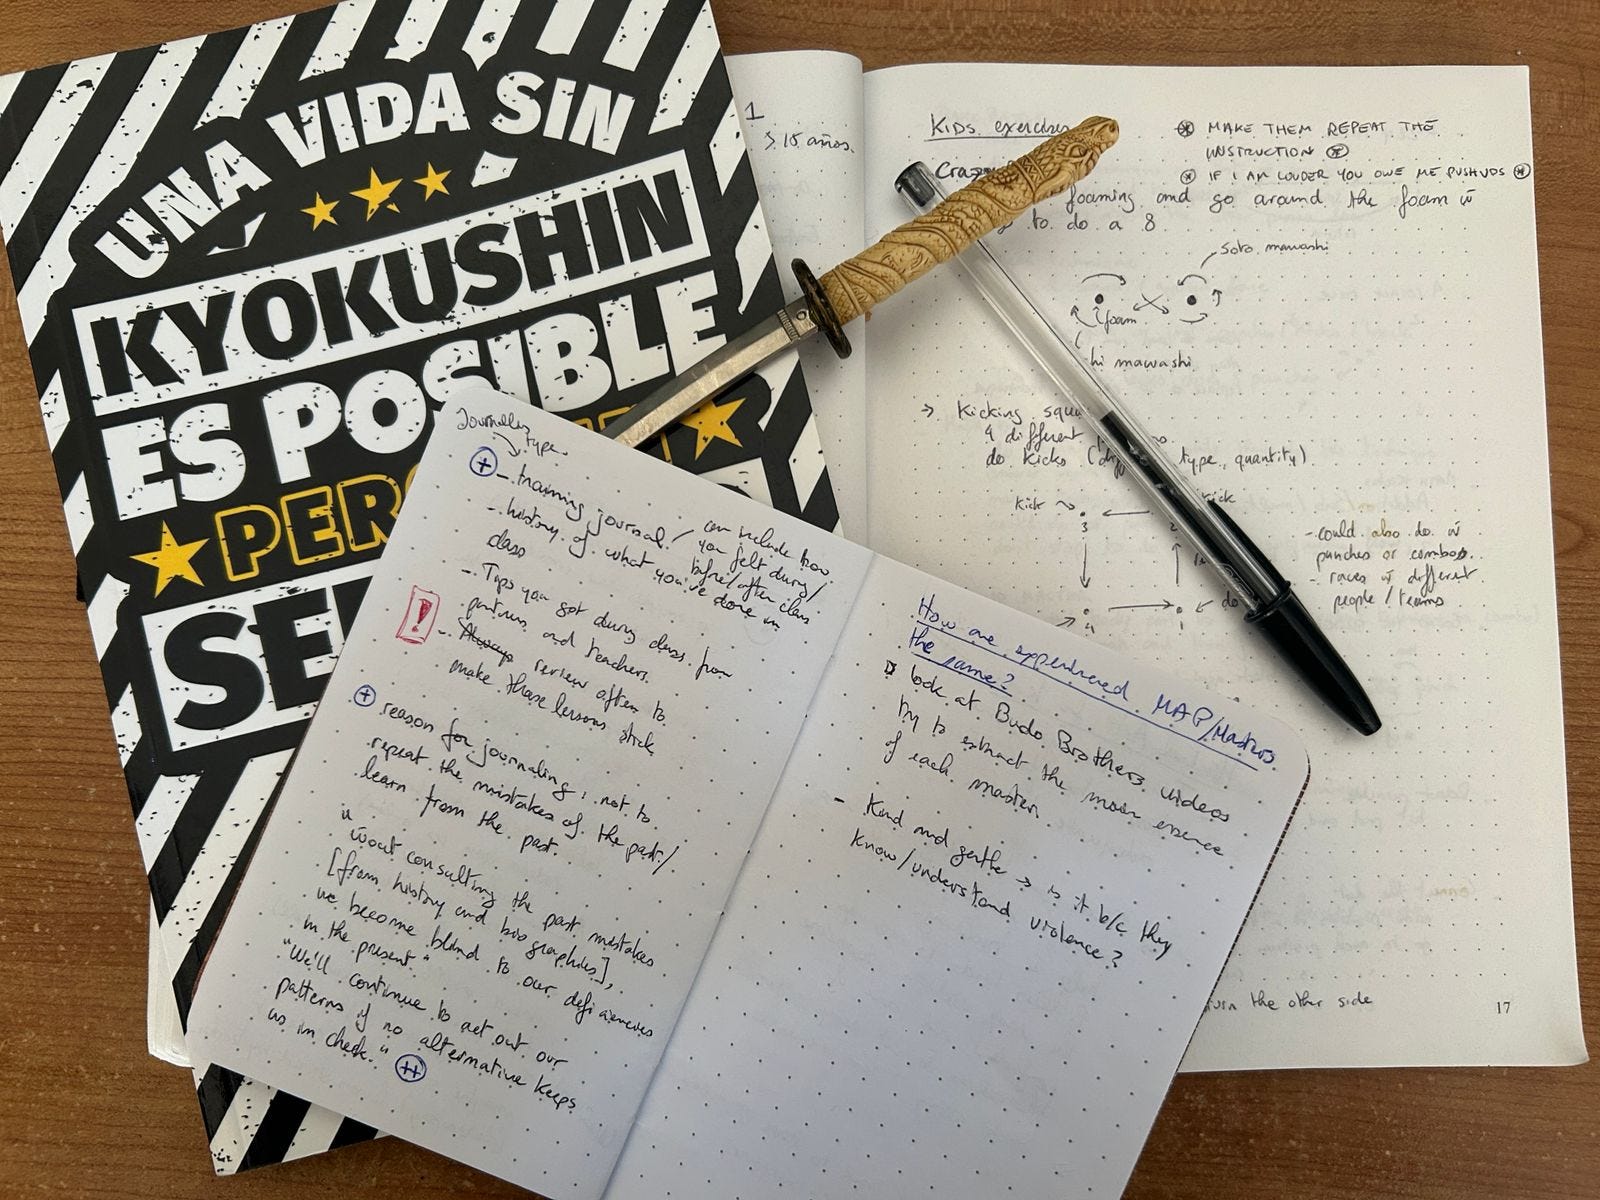 UNA VIDA SIN
KYOKUSHIN
ES POSIBLE
PER
SE
1
> 15 años.
KIDS exercises
⊛ MAKE THEM REPEAT THE
INSTRUCTION ⊛
⊛ IF I AM LOUDER YOU OWE ME PUSHUPS ⊛
foaming and go around the foam w
to do a 8
soto mawashi
foam
hi mawashi
→ Kicking squ
4 different
do kicks ( type, quantity)
Kick
3
2
kick
4
1
do
- could also do w
punches or combos.
- races w different
people / teams
turn the other side
17
Journaling
type
+ - training journal / can include how
you felt during/
before/after class
- history of what you've done in
class
- Tips you got during class from
partners and teachers.
! - Always review often to
make those lessons stick
+ reason for journaling: not to
repeat the mistakes of the past/
learn from the past.
"w/out consulting the past mistakes
[from history and biographies],
we become blind to our deficiencies
in the present"
"We'll continue to act out our
patterns if no alternative keeps
us in check." ++
How are experienced MAP/Masters
the same?
look at Budo Brothers videos
try to extract the main essence
of each master
- Kind and gentle → is it b/c they
know/understand violence?